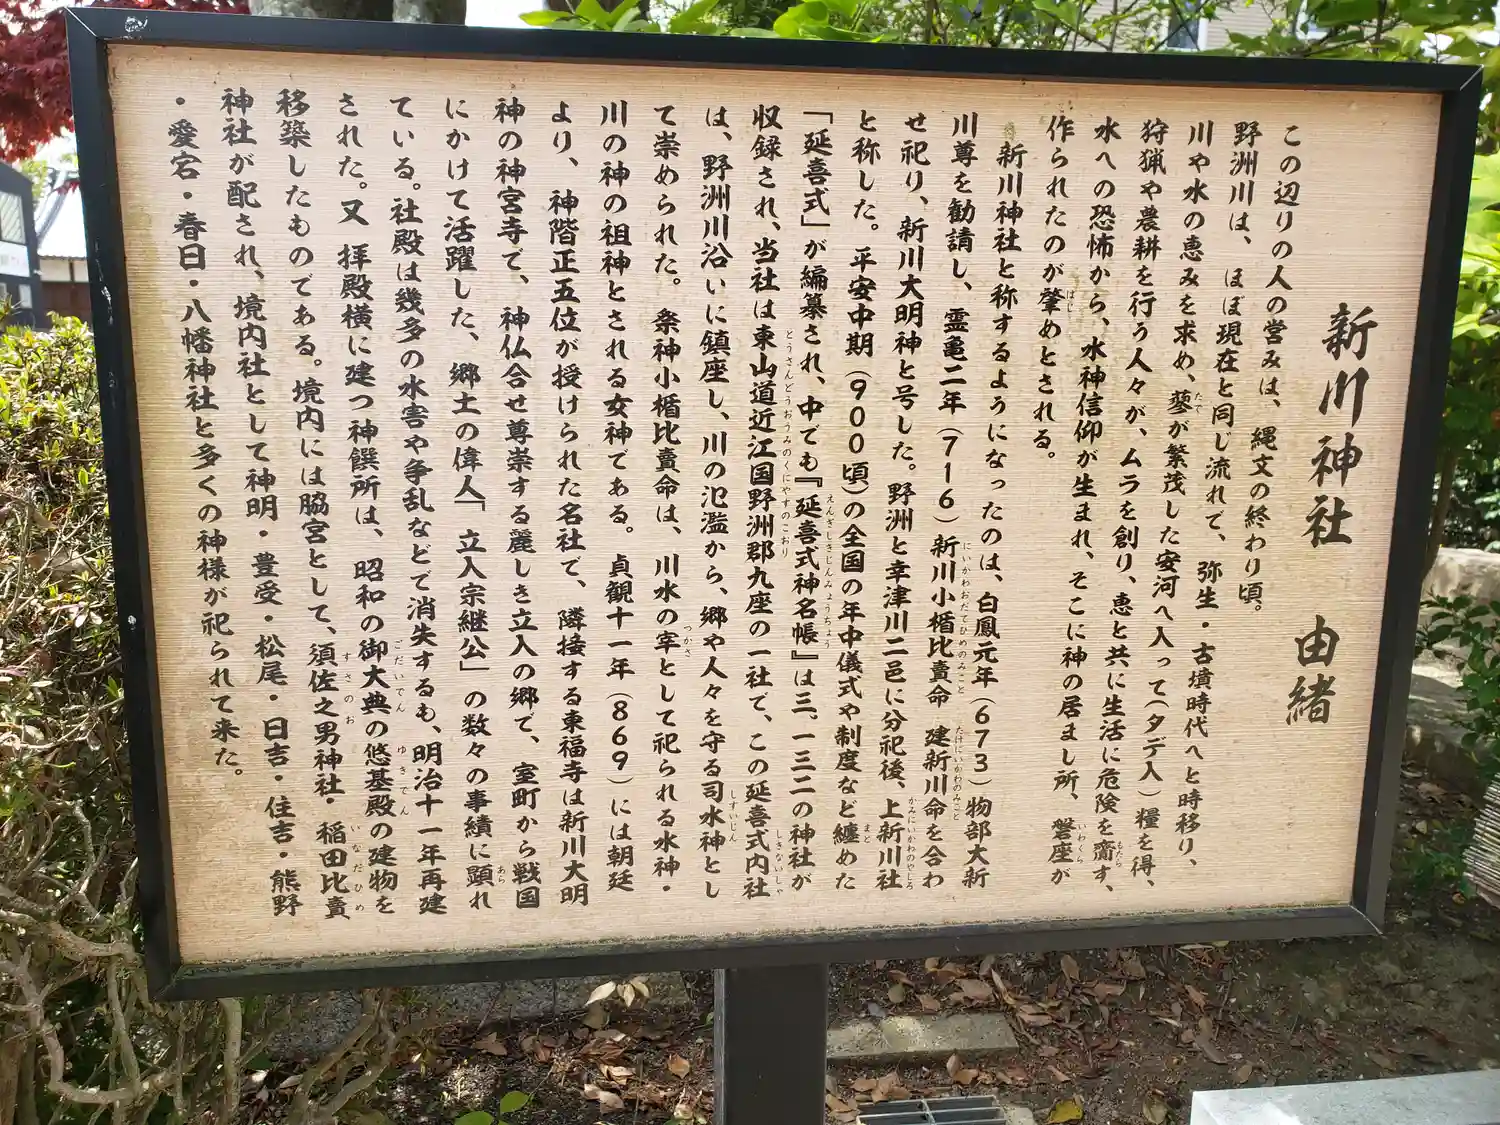 新川神社　由緒
この辺りの人の営みは、縄文の終わり頃。
野洲川は、ほぼ現在と同じ流れで、弥生・古墳時代へと時移り、
川や水の恵みを求め、蓼が繁茂した安河へ入って(タデ入)糧を得、
狩猟や農耕を行う人々が、ムラを創り、恵と共に生活に危険を齎す、
水への恐怖から、水神信仰が生まれ、そこに神の居まし所、磐座が
作られたのが肇めとされる。
新川神社と称するようになったのは、白鳳元年(673)物部大新
川尊を勧請し、霊亀二年(716)新川小楯比賣命　建新川命を合わ
せ祀り、新川大明神と号した。野洲と幸津川二邑に分祀後、上新川社
と称した。平安中期(900頃)の全国の年中儀式や制度など纏めた
「延喜式」が編纂され、中でも『延喜式神名帳』は三、一三二の神社が
収録され、当社は東山道近江国野洲郡九座の一社で、この延喜式内社
は、野洲川沿いに鎮座し、川の氾濫から、郷や人々を守る司水神とし
て崇められた。祭神小楯比賣命は、川水の宰として祀られる水神・
川の神の祖神とされる女神である。貞観十一年(869)には朝廷
より、神階正五位が授けられた名社で、隣接する東福寺は新川大明
神の神宮寺で、神仏合せ尊崇する麗しき立入の郷で、室町から戦国
にかけて活躍した、郷土の偉人「立入宗継公」の数々の事績に顕れ
ている。社殿は幾多の水害や争乱などで消失するも、明治十一年再建
された。又　拝殿横に建つ神饌所は、昭和の御大典の悠基殿の建物を
移築したものである。境内には脇宮として、須佐之男神社・稲田比賣
神社が配され、境内社として神明・豊受・松尾・日吉・住吉・熊野
・愛宕・春日・八幡神社と多くの神様が祀られて来た。